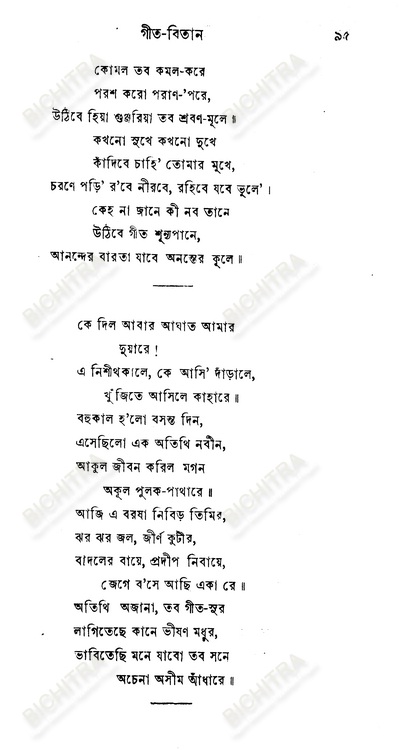 গীত-বিতান ৯৫
কোমল তব কমল-করে
পরশ করো পরাণ-'পরে,
উঠিবে হিয়া গুঞ্জরিয়া তব শ্রবণ-মূলে॥
কখনো সুখে কখনো দুখে
কাঁদিবে চাহি' তোমার মুখে,
চরণে পড়ি' র'বে নীরবে, রহিবে যবে ভুলে'।
কেহ না জানে কী নব তানে
উঠিবে গীত শূন্যপানে,
আনন্দের বারতা যাবে অনন্তের কূলে॥
কে দিল আবার আঘাত আমার
দুয়ারে!
এ নিশীথকালে, কে আসি' দাঁড়ালে,
খুঁজিতে আসিলে কাহারে॥
বহুকাল হ'লো বসন্ত দিন,
এসেছিলো এক অতিথি নবীন,
আকুল জীবন করিল মগন
অকূল পুলক-পাথারে॥
আজি এ বরষা নিবিড় তিমির,
ঝর ঝর জল, জীর্ণ কুটীর,
বাদলের বায়ে, প্রদীপ নিবায়ে,
জেগে ব'সে আছি একা রে॥
অতিথি অজানা, তব গীত-সুর
লাগিতেছে কানে ভীষণ মধুর,
ভাবিতেছি মনে যাবো তব সনে
অচেনা অসীম আঁধারে॥
BICHITRA
BICHITRA
BICHITRA
BICHITRA
BICHITRA
BICHITRA
BICHITRA
BICHITRA